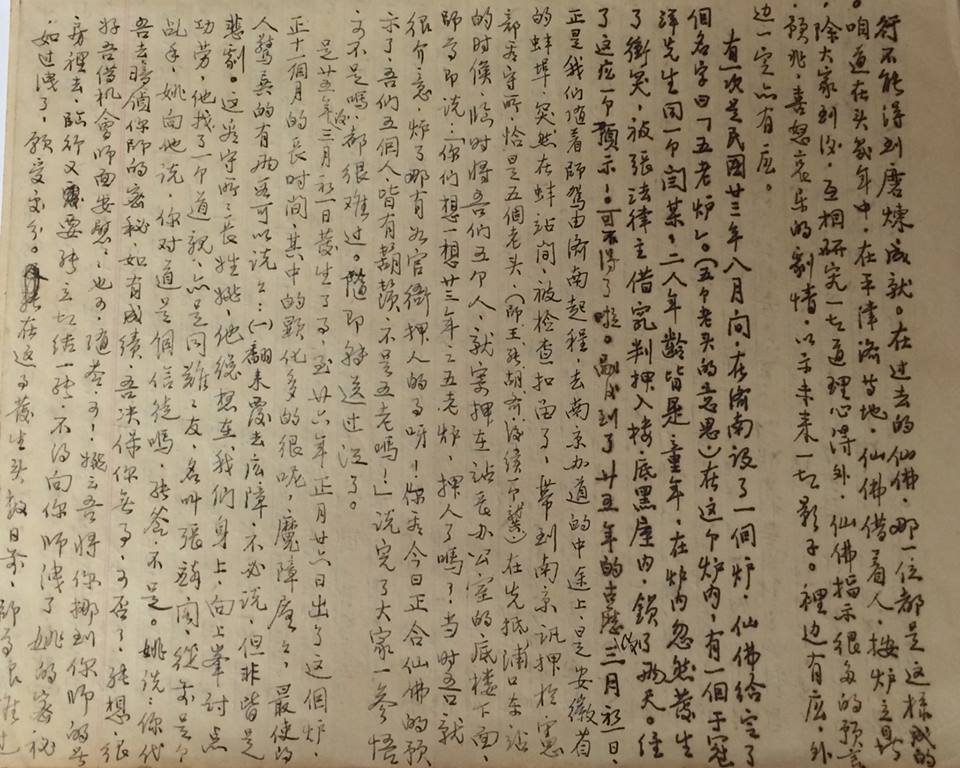 行不能得到磨煉成就。在过去的仙佛，那一位都是这様成的
。咱道在头幾年中，在平津済等地，仙佛借着人，按炉立鼎
，除大家到后，互相研究一切道理心得外，仙佛指示很多的预言
，预兆，喜怒哀乐的劇情，以示未来一切影子。裡边有应，外
边一定亦有应。
有一次是民國廿三年八月间，在済南设了一個炉，仙佛给定了
個名字曰「五老炉」。（五个老头的意思）在这个炉内，有一個于冠
先生同一个闫某，二人年齢皆是童年，在炉内忽然發生
了衝突，被張法律主借竅判押入楼底黑屋内，鎖了两天。
了这広一个預示，可不得了啦。到了廿五年的古曆三月初一日，
正是我们随着師駕由済南起程，去南京办道的中途上，是安徽省
的蚌埠，突然在蚌站间，被检查扣留了，带到南京訊押於憲
部看守所，恰是五個老头，（即王、張、胡、齐、后续一个龔）在先抵浦口车站
的时候，临时將吾们五个人，就寄押在站長办公室的底楼下面，
師尊即说：「你们想一想廿三年之五老炉，押人了嗎？」当时吾就
很介意，炉了那有如官衙押人的事呀！你看今日正合仙佛的预
示了，吾们五個人皆有鬍鬚，不是五老嗎！」说完了大家一参悟
，可不是嗎，都很难过。随即解送过江了。
是廿五年三月初一日發生了事，至廿六年正月廿六日出了这個炉，
正十一個月的長时间，其中的顕化多的很呢，魔障広々，最使的
人驚異的有两套可以说々：（一）翻来覆去広障，不必说，但非皆是
悲劇。这看守所之長姓姚，他總想在我们身上，向上峯討点
功劳，他找了一个道親，亦是同難之友，名叫張
战手，姚向他说，你对道是個信徒嗎，張答不是。姚说：你代
吾去暗偵你師的密秘，如有成绩，吾决保你無事，可否？張想，很
好吾借机會師面安慰，也可，随答可！姚言吾將你挪到你師的
房裡去，临行又要張立切结一紙，不得向你師洩了姚的密秘
，如过洩了，願受处分。張在这事發生头数日前，師尊